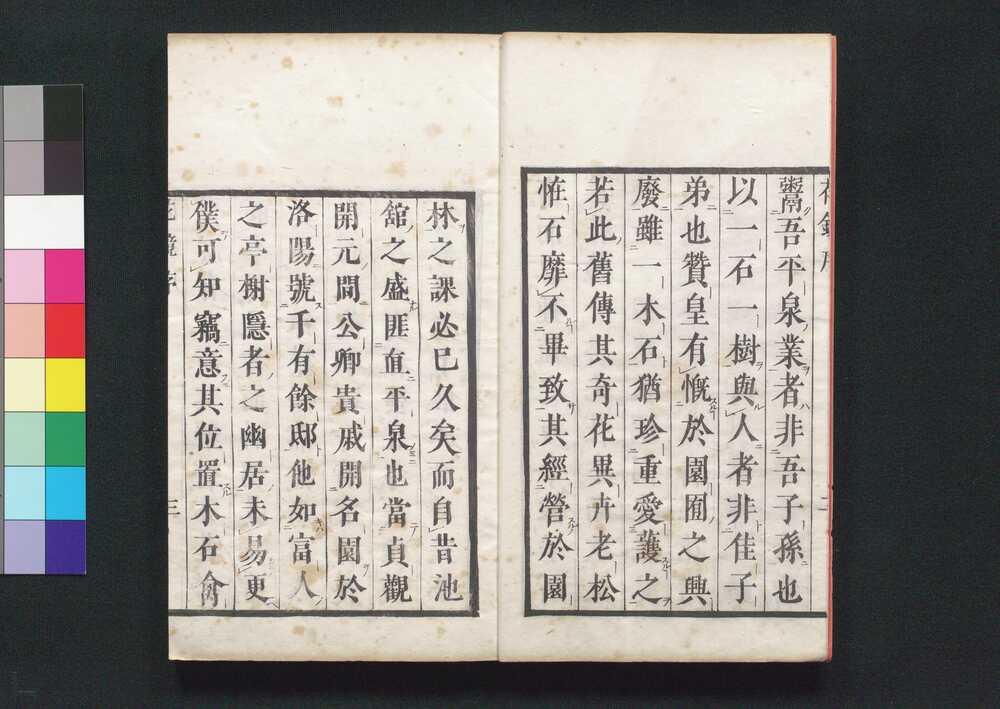 鬻吾平泉業者非吾子孫也
以一石一樹與人者非佳子
弟也贊皇有慨於園囿之興
廢雖一木石猶珍重愛護之
若此舊傳其奇花異卉老松
恠石靡不畢致其經營於園
林之課必已久矣而自昔池
舘之盛匪直平泉也當貞觀
開元間公卿貴戚開名園於
洛陽號千有餘邸他如富人
之亭榭隱者之幽居未易更
僕可知竊意其位置木石禽
三